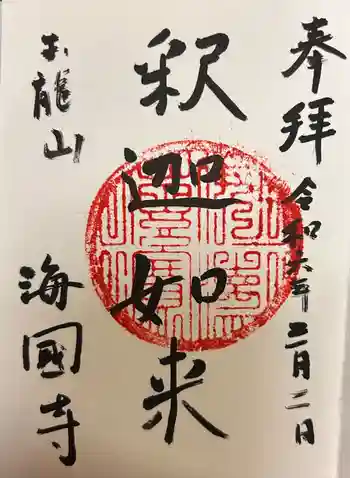 奉拝
令和六年三月二日
釈迦如来
玉龍山
海國寺